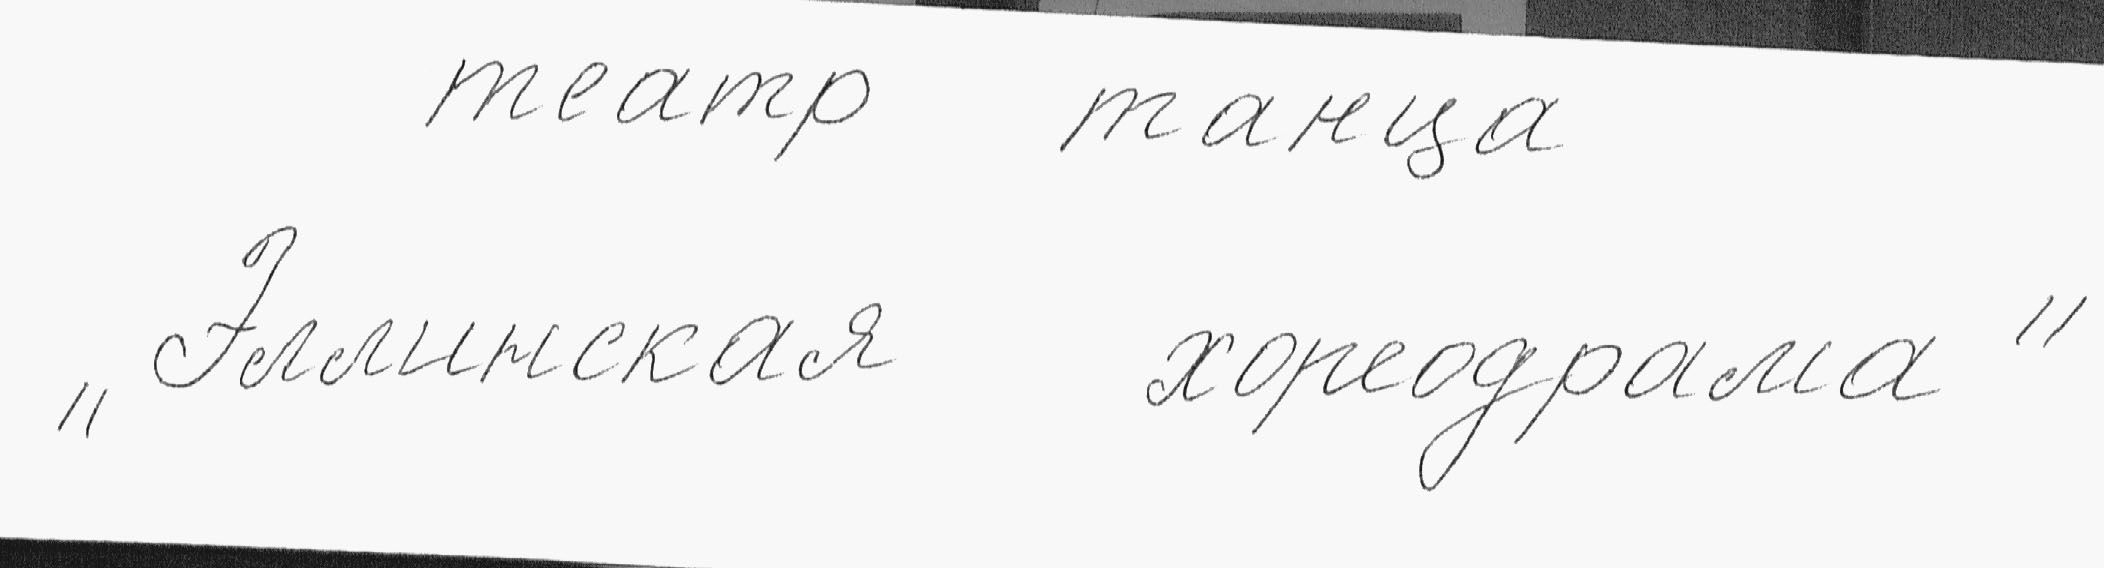 театр танца
„Эллинская хореодрама"